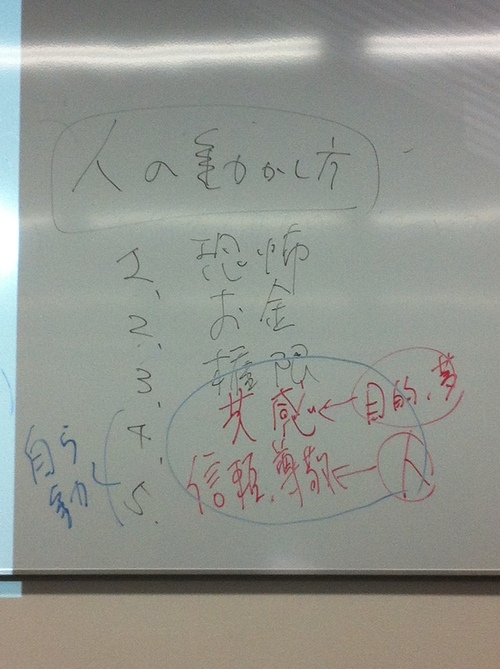 人の動かし方
1. 恐怖
2. お金
3. 権限
4. 共感 ← 目的、夢
5. 信頼、尊敬 ← 人
自ら
動く